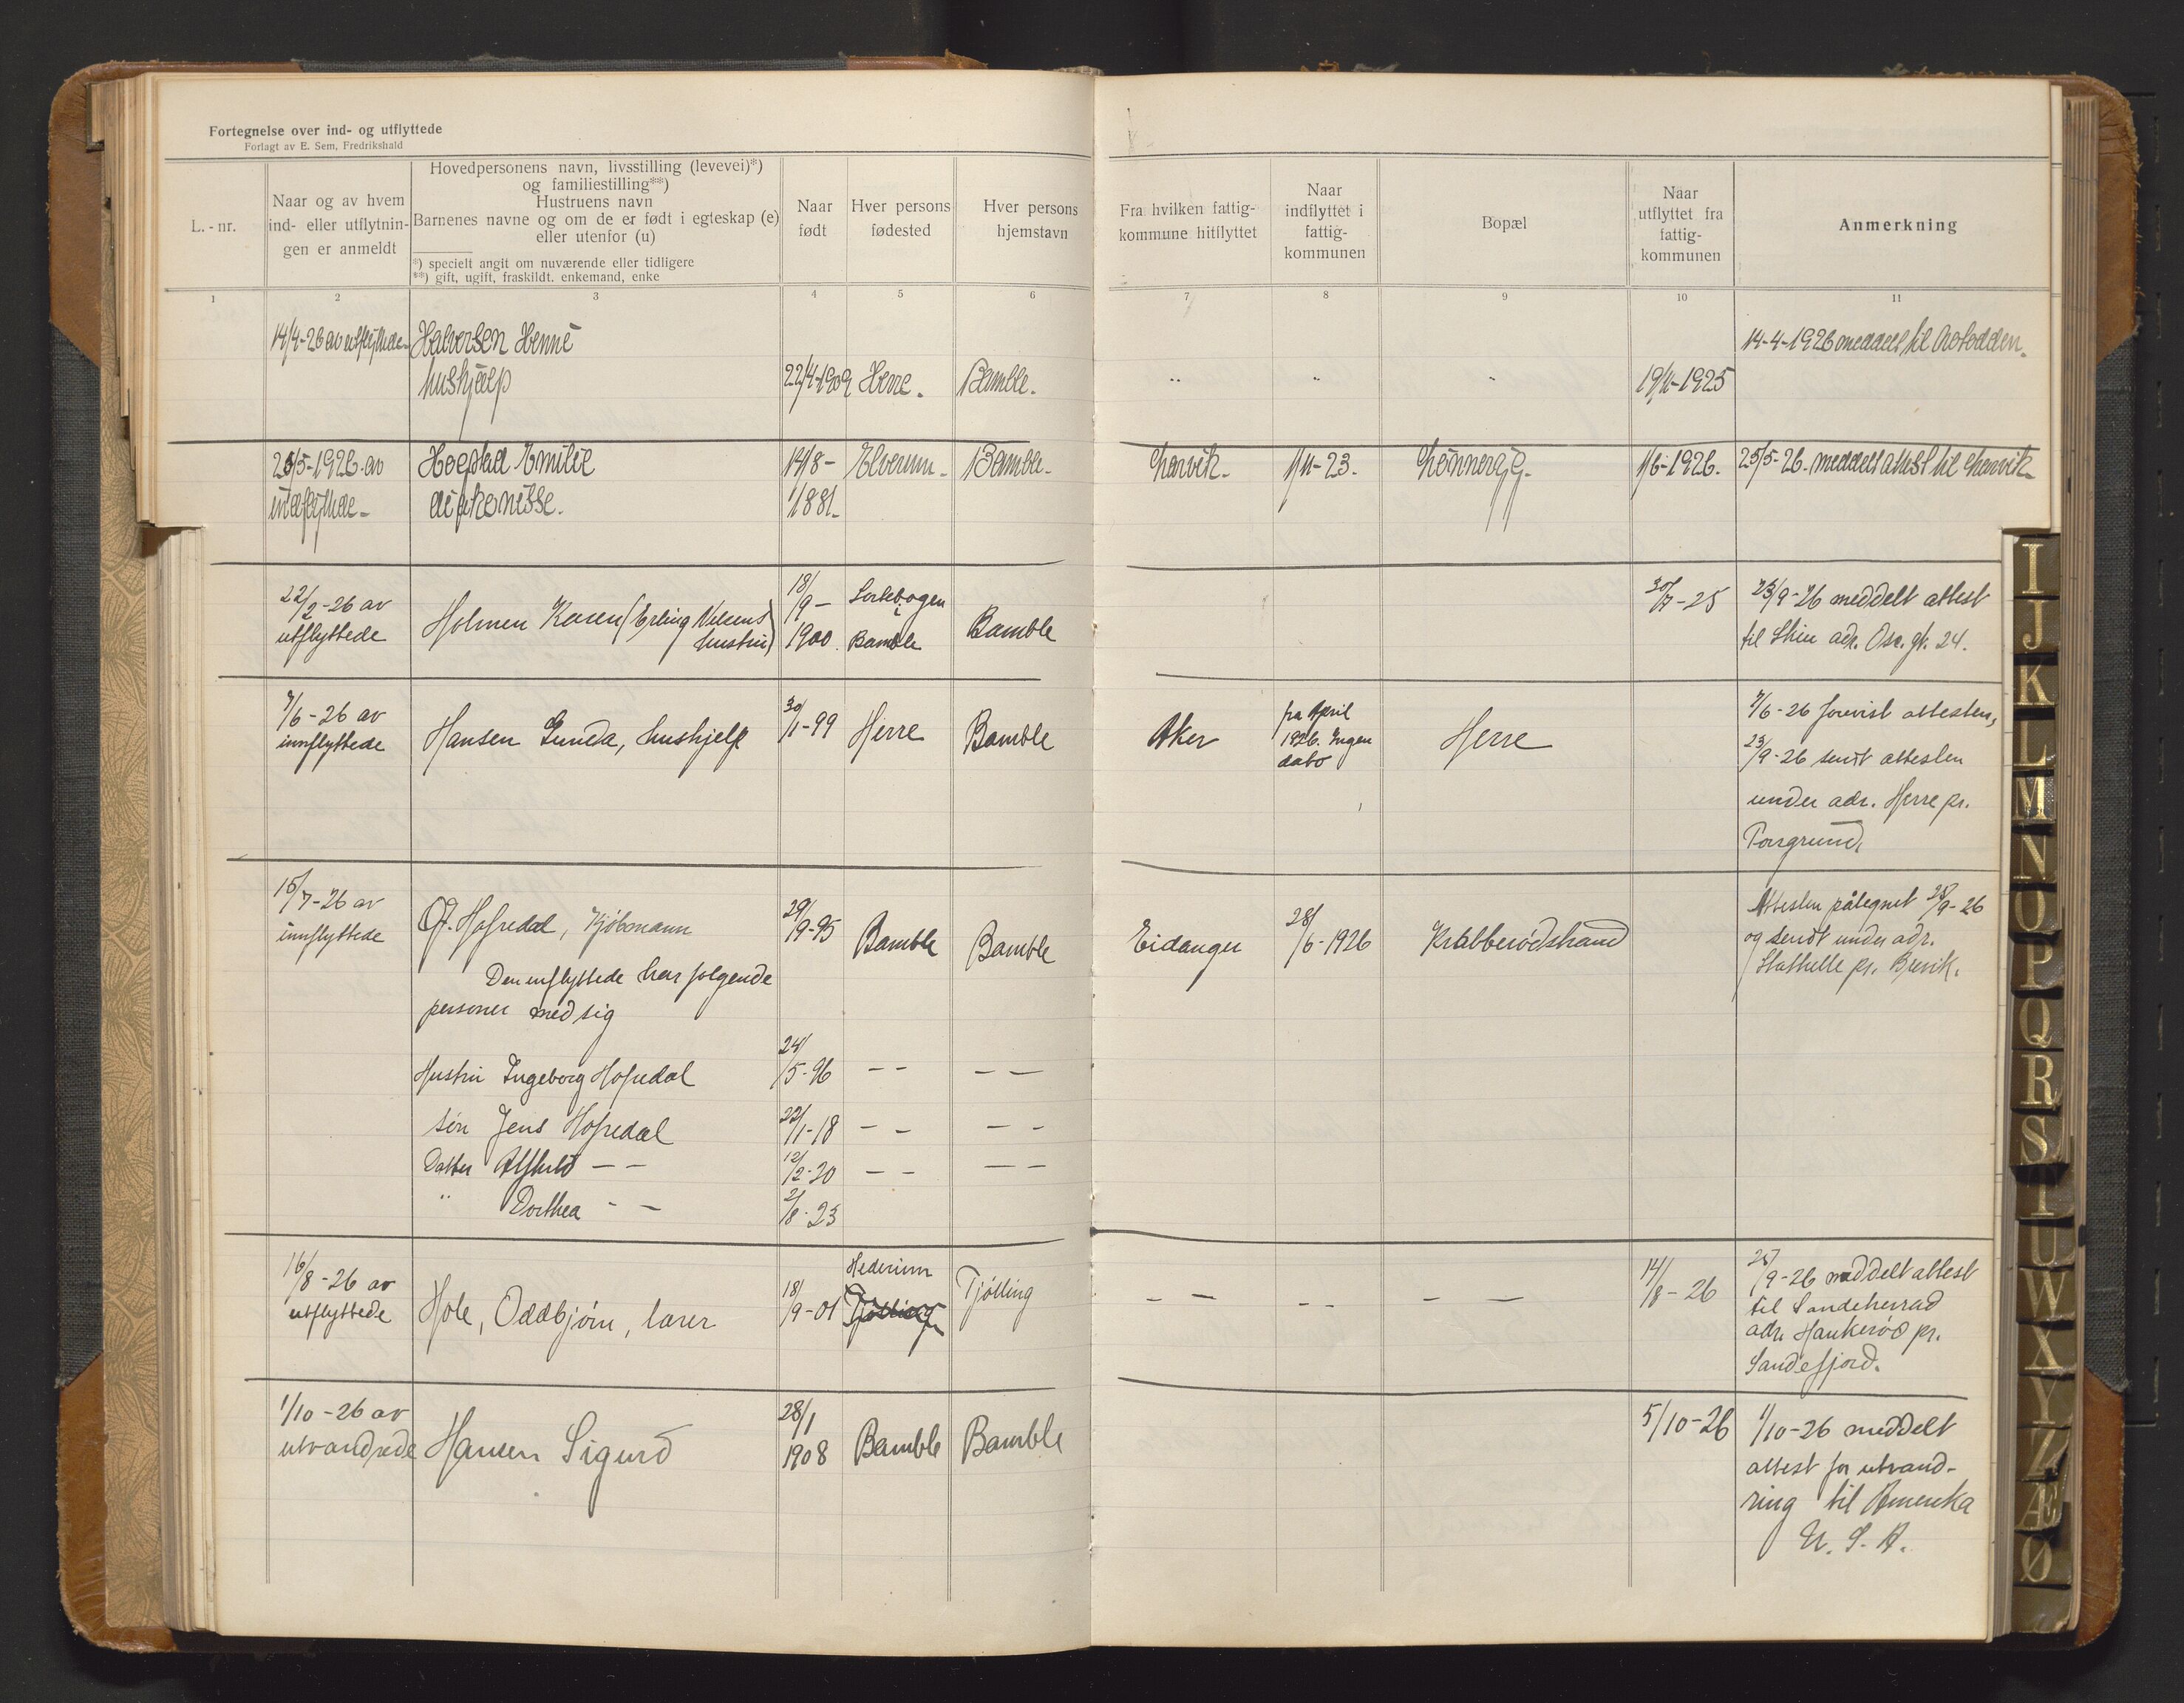 Fortegnelse over ind- og utflyttede
Forlagt av E. Sem, Fredrikshald
L.-nr.
Naar og av hvem
ind- eller utflytnin-
gen er anmeldt
Hovedpersonens navn, livsstilling (levevei)*)
og familiestilling**)
Hustruens navn
Barnenes navne og om de er født i egteskap (e)
eller utenfor (u)
*) specielt angit om nuværende eller tidligere
**) gift, ugift, fraskildt, enkemand, enke
Naar
født
Hver persons
fødested
Hver persons
hjemstavn
Fra hvilken fattig-
kommune hitflyttet
Naar
indflyttet i
fattig-
kommunen
Bopæl
Naar
utflyttet fra
fattig-
kommunen
Anmerkning
1 2 3 4 5 6 7 8 9 10 11
14/4-26 av utflyttede Halversen 14-4-1926 meddelt til Notodden.
hushjælp 22/4-1909 Herre. Bamble. " " " 1925
25/5-1926 av Emilie 14/8- Elverum. Bamble. Larvik. 1/11-23. 1/6-1926. 25/5-26. meddelt attest til Larvik
diakonisse. 1881.
22/2-26 av
utflyttede
Holmen Karen (Erling
hustru)
18/9-
1900.
i
Bamble
Bamble
30/7-25
23/9-26 meddelt attest
til Skien adr. 24.
7/6-26 av
innflyttede
Hansen Gunda, hushjelp
30/1-99
Herre
Bamble
Aker
fra April
1926. Ingen
dato
Herre
7/6-26 forevist attesten,
23/9-26 sendt attesten
under adr. Herre pr.
Porsgrund.
15/7-26 av
innflyttede
Hafredal, Kjøbmann
29/9-95
Bamble
Bamble
Eidanger
28/6-1926
Krabberødstrand
Attesten påtegnet 25/9-26
og sendt under adr.
Stathelle pr. Brevik.
Den innflyttede har følgende
personer med sig
Hustru Ingeborg Hafredal 24/5-96 - - - -
søn Jens Hafredal 22/1-18 - - - -
Datter Alfhild - - 12/2-20 - - - -
" Dorthea - - 2/8-23
16/8-26 av
utflyttede
Hole, Oddbjørn, lærer
18/9-01
Hederum
Tjølling
Tjølling
- - - - - -
14/8-26
25/9-26 meddelt attest
til Sandeherrad
adr. Haukerød pr.
Sandefjord.
1/10-26 av
utvandrede
Hansen Sigurd
28/1
1908
Bamble
Bamble
5/10-26
1/10-26 meddelt
attest for utvand-
ring til Amerika
U. S. A.
I
J
K
L
M
N
O
P
Q
R
S
T
U
W
X
Y
Z
Æ
Ø